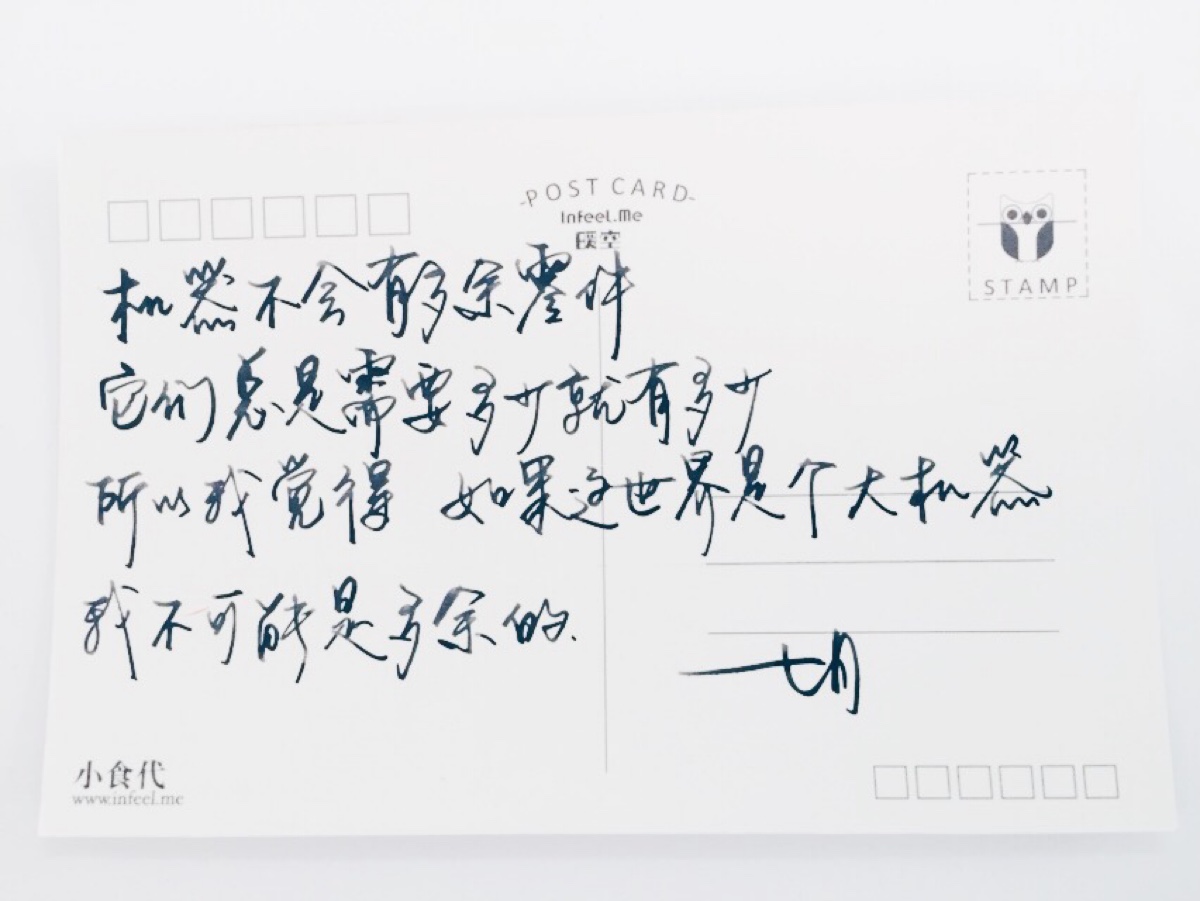 -POST CARD-
Infeel.Me
STAMP
机器不会有多余零件
它们总是需要多少就有多少
所以我觉得 如果这世界是个大机器
我不可能是多余的.
小食代
www.infeel.me